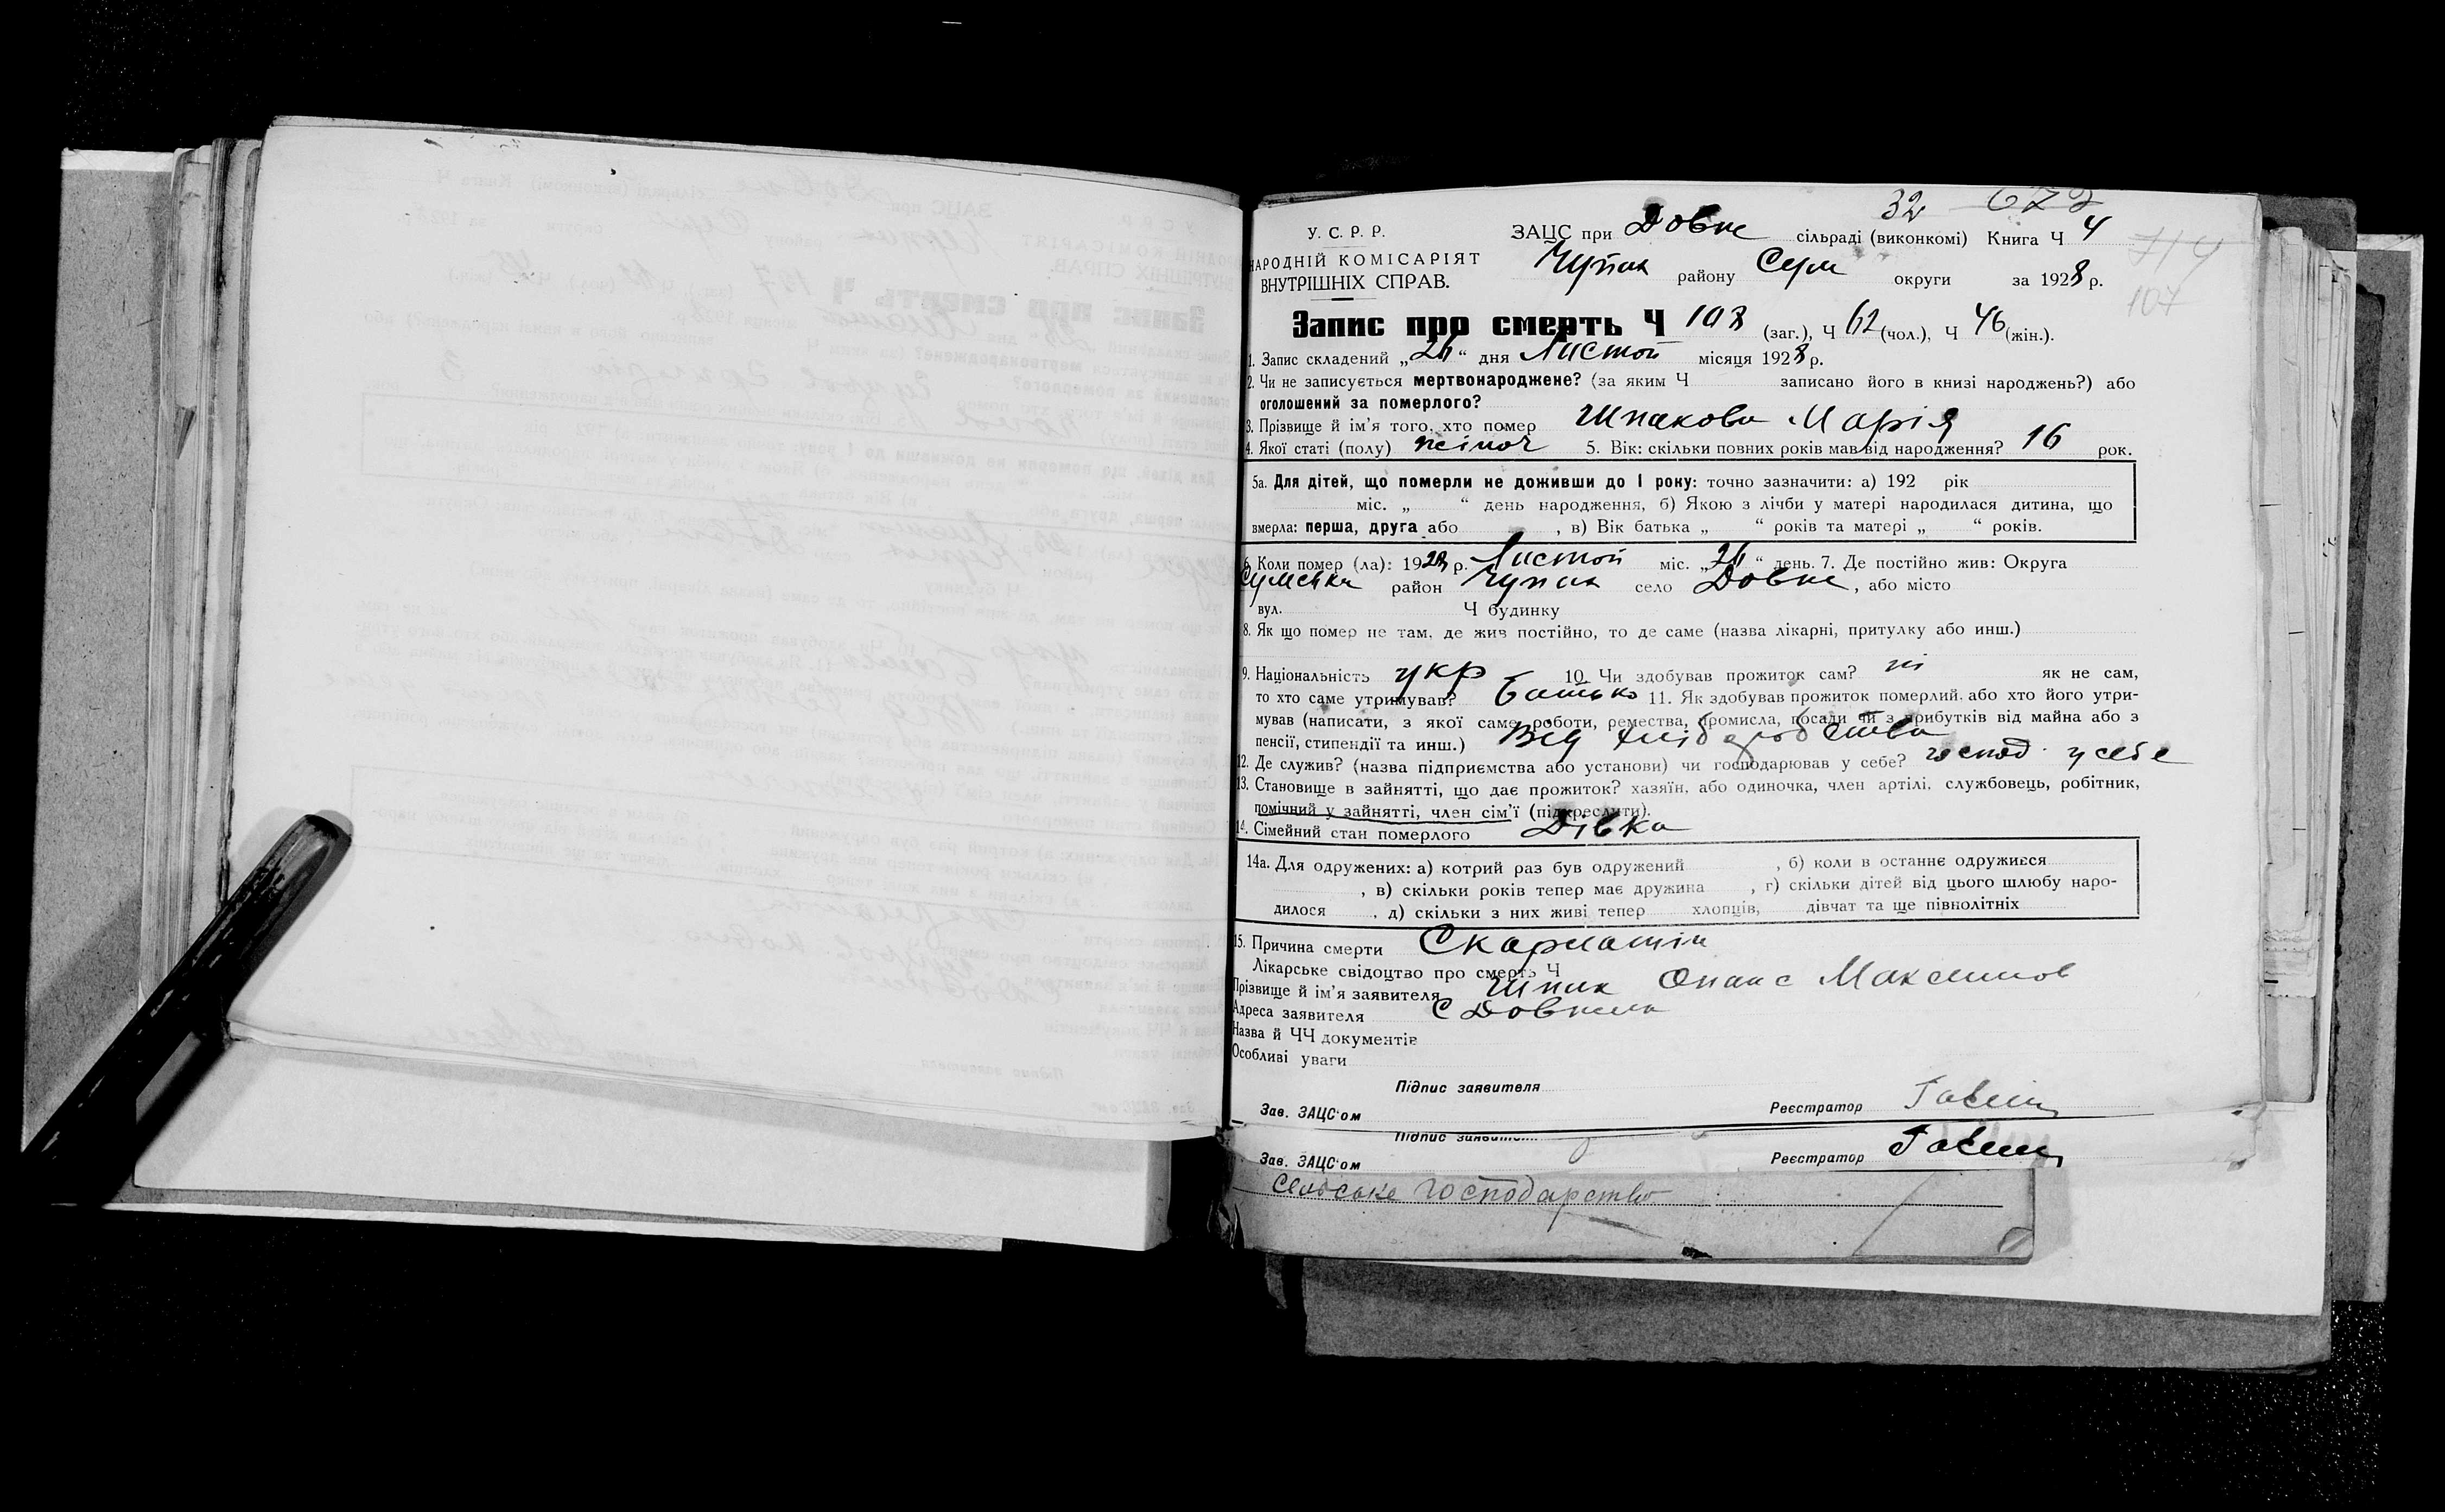 32 672
У. С. Р. Р. ЗАЦС при Довж сільраді (виконкомі) Книга Ч 4
714
НАРОДНІЙ КОМІСАРІЯТ
ВНУТРІШНІХ СПРАВ. Чупах району Сум округи за 1928 р.
107
Запис про смерть Ч 108 (заг.), Ч 62 (чол.), Ч 46 (жін.).
1. Запис складений „26“ дня Листоп місяця 1928 р.
2. Чи не записується мертвонароджене? (за яким Ч записано його в книзі народжень?) або
оголошений за померлого?
3. Прізвище й ім'я того, хто помер Шпакова Марія
4. Якої статі (полу) жіноч 5. Вік: скільки повних років мав від народження? 16 рок.
5а. Для дітей, що померли не доживши до 1 року: точно зазначити: а) 192 рік
міс. „ “ день народження, б) Якою з лічби у матері народилася дитина, що
вмерла: перша, друга або , в) Вік батька „ “ років та матері „ “ років.
6. Коли помер (ла): 1928 р. Листоп міс. „26“ день. 7. Де постійно жив: Округа
Сумська район Чупах село Довж, або місто
вул. Ч будинку
8. Як що помер не там, де жив постійно, то де саме (назва лікарні, притулку або инш.)
9. Національність укр 10. Чи здобував прожиток сам? ні як не сам,
то хто саме утримував? батько 11. Як здобував прожиток померлий, або хто його утри-
мував (написати, з якої саме роботи, ремества, промисла, посади чи з прибутків від майна або з
пенсії, стипендії та инш.) Від хліборобства
12. Де служив? (назва підприємства або установи) чи господарював у себе? господ. у себе
13. Становище в зайнятті, що дає прожиток? хазяїн, або одиночка, член артілі, службовець, робітник,
помічний у зайнятті, член сім'ї (підкреслити).
14. Сімейний стан померлого Дівка
14а. Для одружених: а) котрий раз був одружений , б) коли в останнє одружився
, в) скільки років тепер має дружина , г) скільки дітей від цього шлюбу наро-
дилося , д) скільки з них живі тепер хлопців, дівчат та ще півнолітніх
15. Причина смерти Скарлатін
Лікарське свідоцтво про смерть Ч
Прізвище й ім'я заявителя Шпак Опанас Максимов
Адреса заявителя с Довжик
Назва й ЧЧ документів
Особливі уваги
Підпис заявителя
Зав. ЗАЦС'ом Реєстратор
Підпис заявит
Зав. ЗАЦС'ом Реєстратор
Сельське господарство